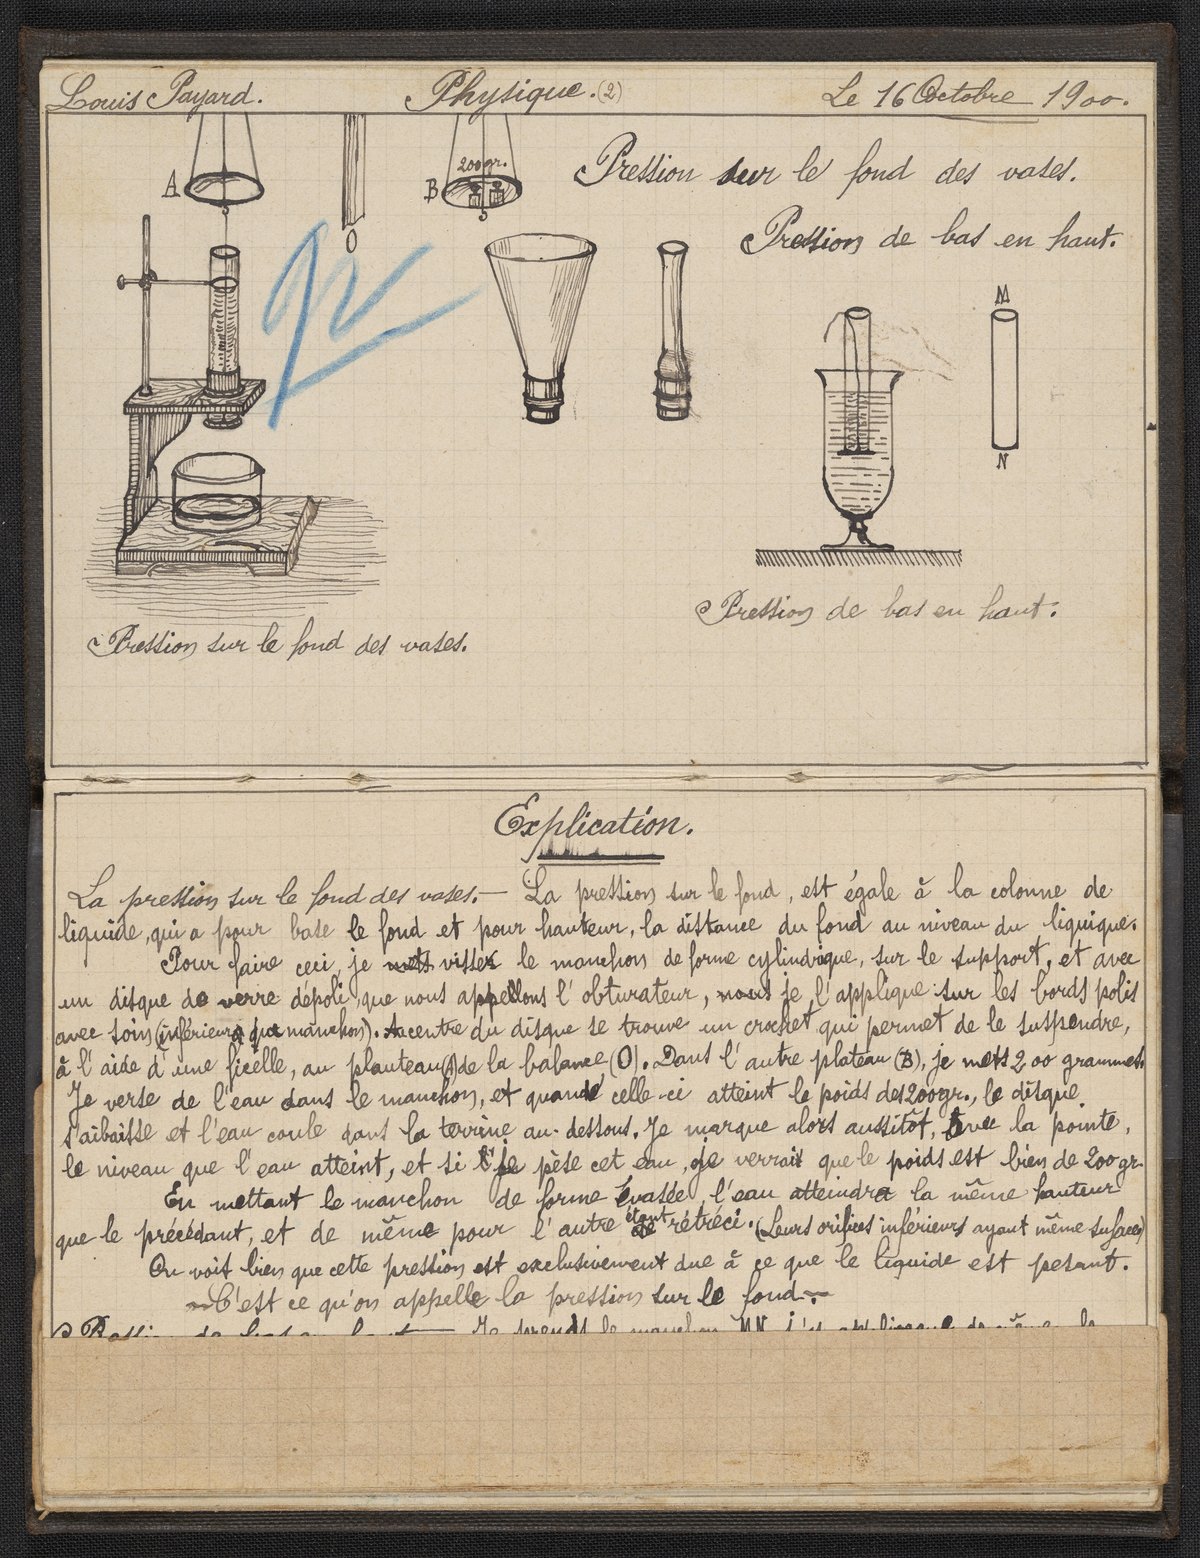 Louis Payard. Physique. (2) Le 16 Octobre 1900.
Pression sur le fond des vases.
Pression de bas en haut.
A
O
B
200gr.
M
N
Pression de bas en haut.
Pression sur le fond des vases.
Explication.
La pression sur le fond des vases.— La pression sur le fond, est égale à la colonne de
liquide, qui a pour base le fond et pour hauteur, la distance du fond au niveau du liquique.
Pour faire ceci, je mets visser le manchon de forme cylindrique, sur le support, et avec
un disque de verre dépoli, que nous appellons l'obturateur, nous je l'applique sur les bords polis
avec soin (inférieurs du manchon). Au centre du disque se trouve un crochet qui permet de le suspendre,
à l'aide d'une ficelle, au planteau (A) de la balance (O). Dans l'autre plateau (B), je mets 200 grammes.
Je verse de l'eau dans le manchon, et quand celle-ci atteint le poids des 200gr., le disque
s'aibaisse et l'eau coule dans la terrine au-dessous. Je marque alors aussitôt, avec la pointe,
le niveau que l'eau atteint, et si je pèse cet eau, je verrait que le poids est bien de 200 gr.
En mettant le manchon de forme évasée, l'eau atteindra la même hauteur
que le précédant, et de même pour l'autre étant rétréci. (Leurs orifices inférieurs ayant même sufaces)
On voit bien que cette pression est exclusivement due à ce que le liquide est pesant.
— C'est ce qu'on appelle la pression sur le fond. —
Pression de bas en haut — Je prends le manchon MN, j'y applique de même le